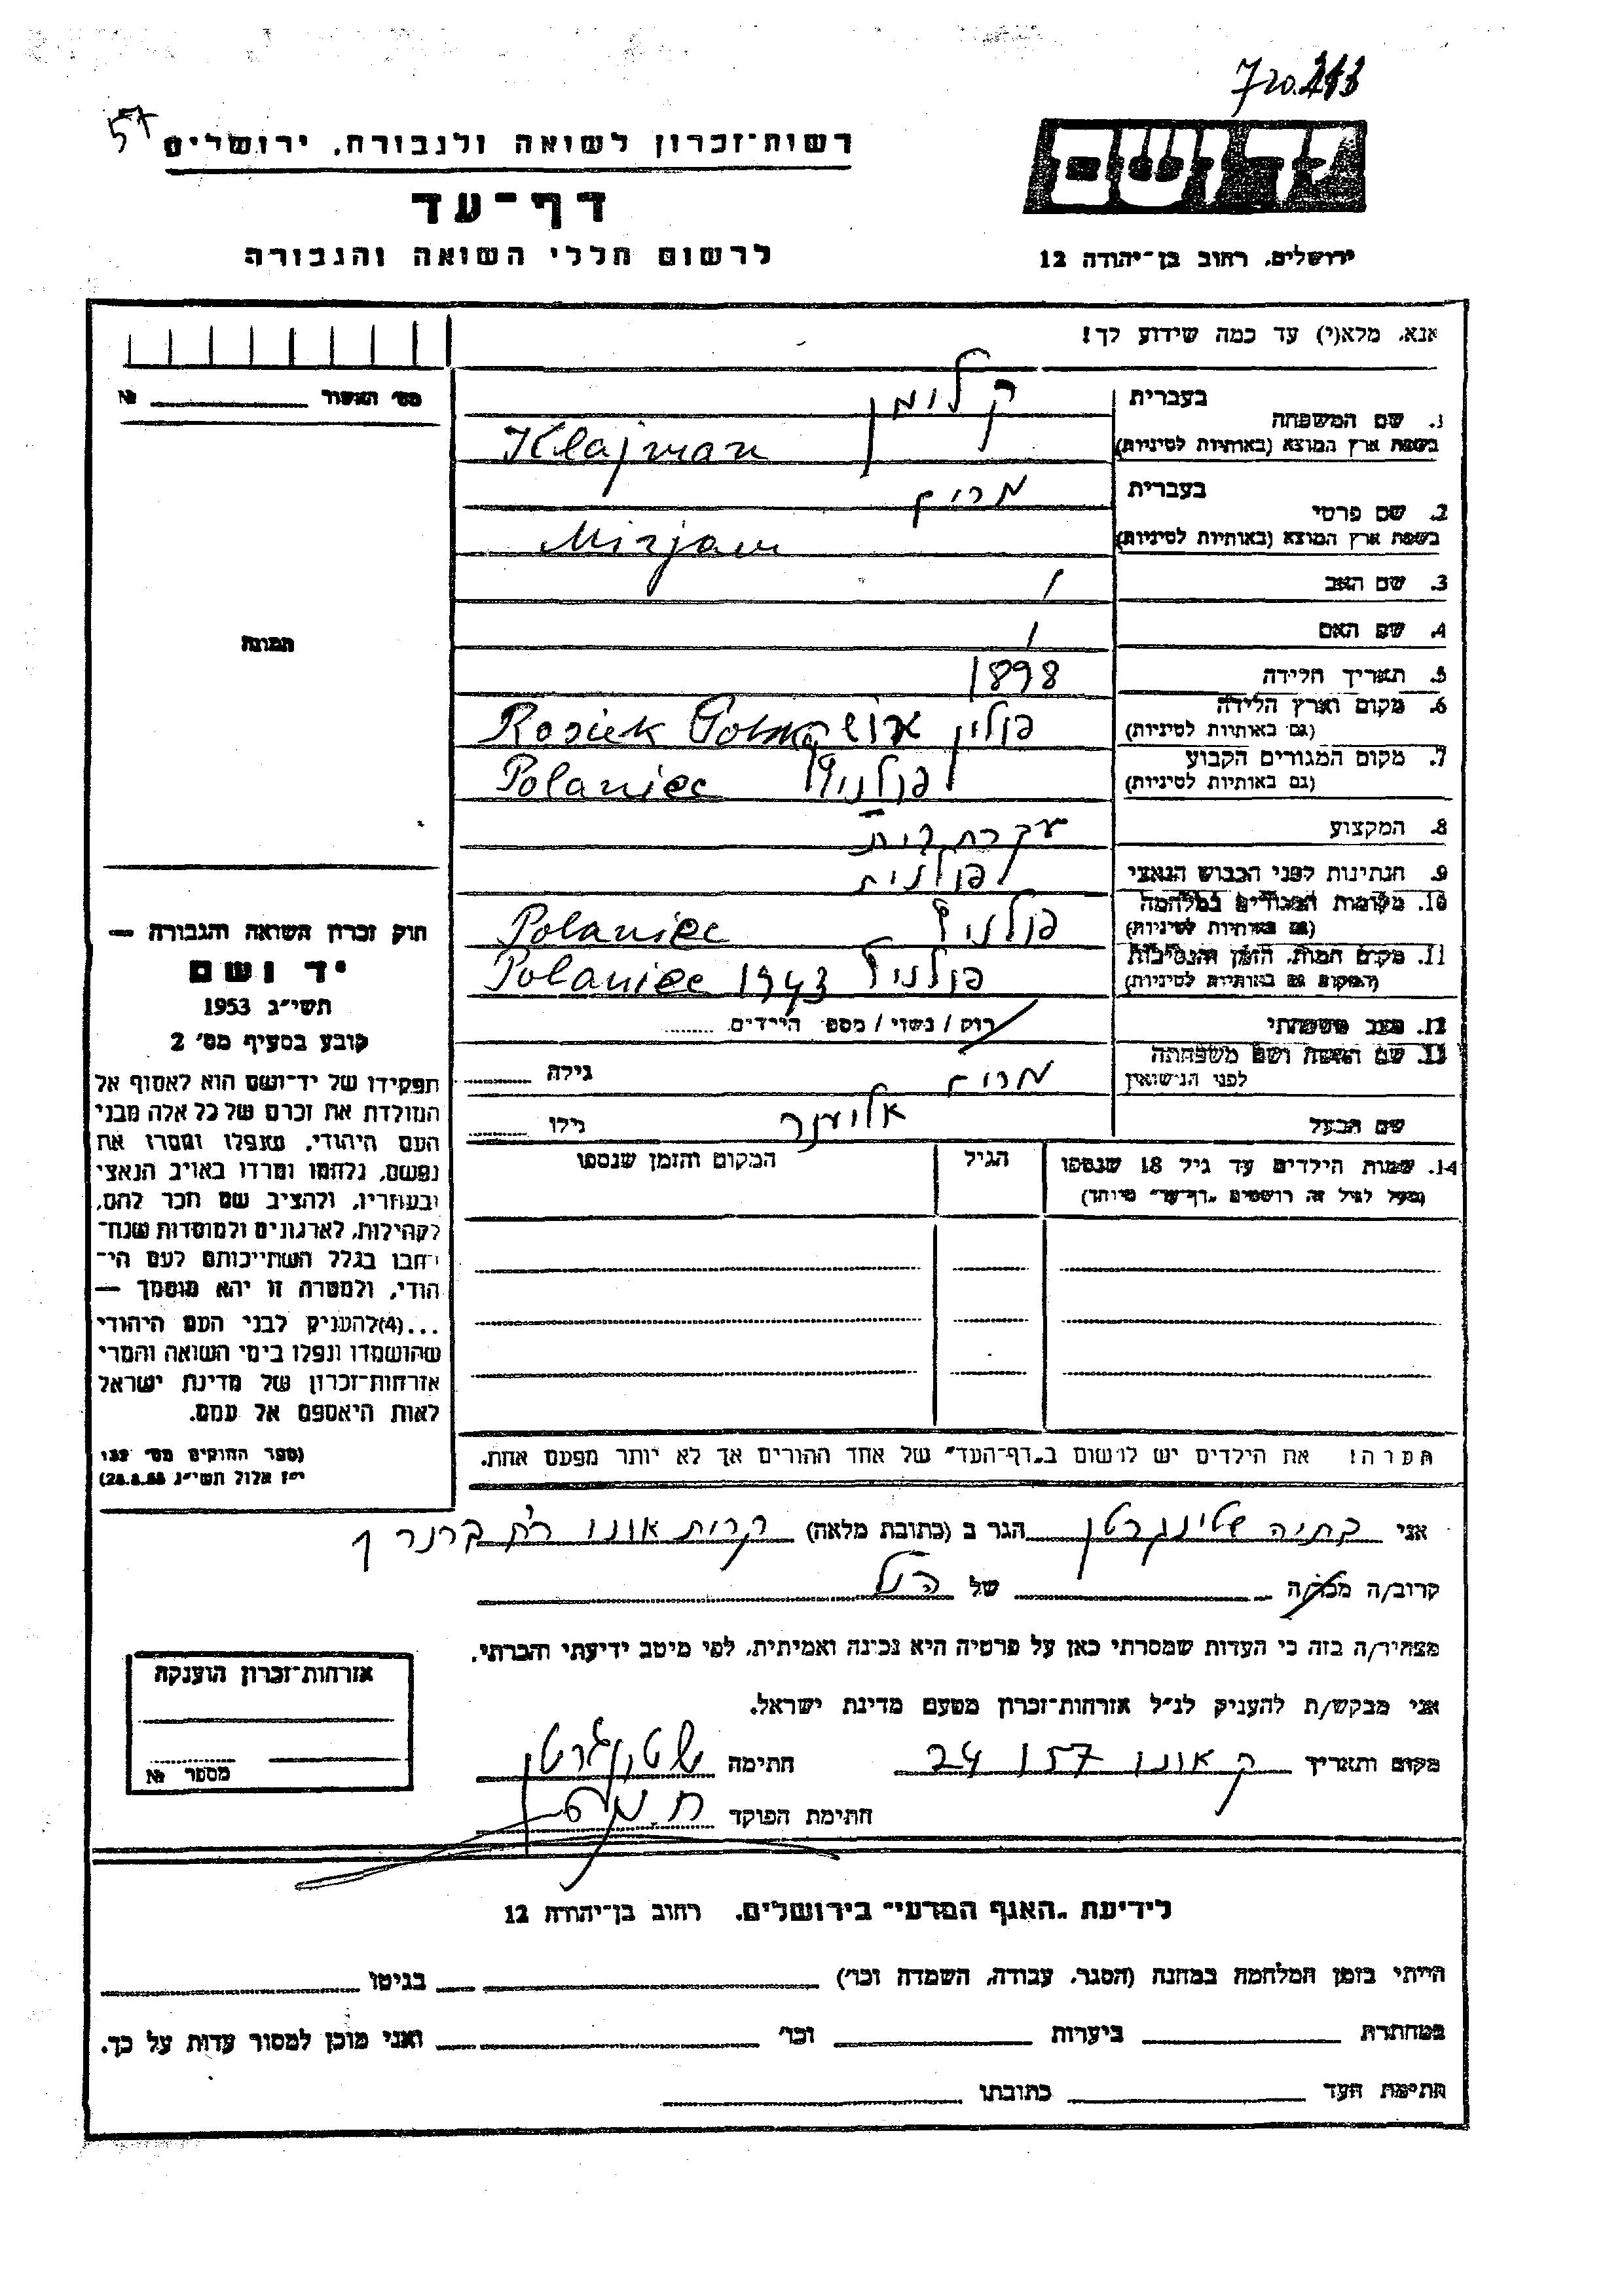 57
רשות־זכרון לשואה ולגבורה, ירושלים
דף־עד
לרשום חללי השואה והגבורה
יד ושם
ירושלים, רחוב בן־יהודה 12
אנא, מלא(י) עד כמה שידוע לך!
1. שם המשפחה
בעברית קליימן
בשפת ארץ המוצא (באותיות לטיניות) Klajman
2. שם פרטי
בעברית מרים
בשפת ארץ המוצא (באותיות לטיניות) Mirjam
3. שם האב /
4. שם האם /
5. תאריך הלידה 1898
6. מקום וארץ הלידה
(גם באותיות לטיניות) פולין Rosiek
7. מקום המגורים הקבוע
(גם באותיות לטיניות) פולניץ Polaniec
8. המקצוע עקרת בית
9. הנתינות לפני הכבוש הנאצי פולנית
10. מקומות המגורים במלחמה
(גם באותיות לטיניות) פולניץ Polaniec
11. מקום המות, הזמן והנסיבות
(המקום גם באותיות לטיניות) פולניץ 1943 Polaniec
12. מצב משפחתי רווק / נשוי / מספר הילדים
13. שם האשה ושם משפחתה
לפני הנישואין מרים גילה
שם הבעל אליעזר גילו
14. שמות הילדים עד גיל 18 שנספו הגיל המקום והזמן שנספו
(מעל לגיל זה רושמים „דף־עד" מיוחד)
הערה! את הילדים יש לרשום ב„דף־העד" של אחד ההורים אך לא יותר מפעם אחת.
מס' האשור №
תמונה
חוק זכרון השואה והגבורה —
יד ושם
תשי"ג 1953
קובע בסעיף מס' 2
תפקידו של יד־ושם הוא לאסוף אל
המולדת את זכרם של כל אלה מבני
העם היהודי, שנפלו ומסרו את
נפשם, נלחמו ומרדו באויב הנאצי
ובעוזריו, ולהציב שם וזכר להם,
לקהילות, לארגונים ולמוסדות שנח־
רבו בגלל השתייכותם לעם הי־
הודי, ולמטרה זו יהא מוסמך —
...(4)להעניק לבני העם היהודי
שהושמדו ונפלו בימי השואה והמרי
אזרחות־זכרון של מדינת ישראל
לאות היאספם אל עמם.
(ספר החוקים מס' 132
י"ז אלול תשי"ג 28.8.53)
אני בתיה שטיינגרטן הגר ב (כתובת מלאה) קרית אונו רח ברנר
קרוב/ה מכר/ה של הנ"ל
מצהיר/ה בזה כי העדות שמסרתי כאן על פרטיה היא נכונה ואמיתית, לפי מיטב ידיעתי והכרתי.
אני מבקש/ת להעניק לנ"ל אזרחות־זכרון מטעם מדינת ישראל.
מקום ותאריך ק אונו 24 / 57 חתימה שטינגרטן
חתימת הפוקד
אזרחות־זכרון הוענקה
מספר №
לידיעת „האגף המדעי" בירושלים, רחוב בן־יהודה 12
הייתי בזמן המלחמה במחנה (הסגר, עבודה, השמדה וכו') בגיטו
במחתרת ביערות וכו' ואני מוכן למסור עדות על כך.
חתימת העד כתובתו